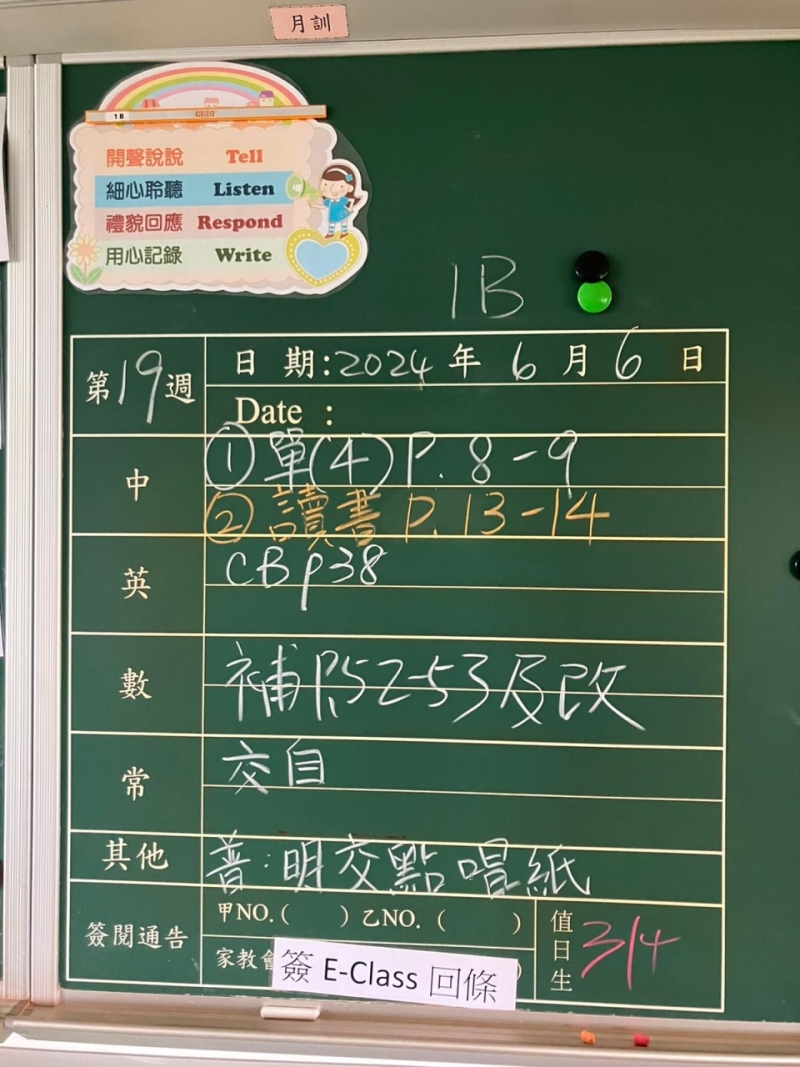 月訓
1B
開聲說說 Tell
細心聆聽 Listen
禮貌回應 Respond
用心記錄 Write
1B
第19週
日期:2024年6月6日
Date :
中
①單(4)P.8-9
②讀書P.13-14
英
CB p38
數
補P.52-53及改
常
交自
其他
普:明交點唱紙
簽閱通告
甲NO.( ) 乙NO.( )
家教會
簽 E-Class 回條
)
值日生
3/4